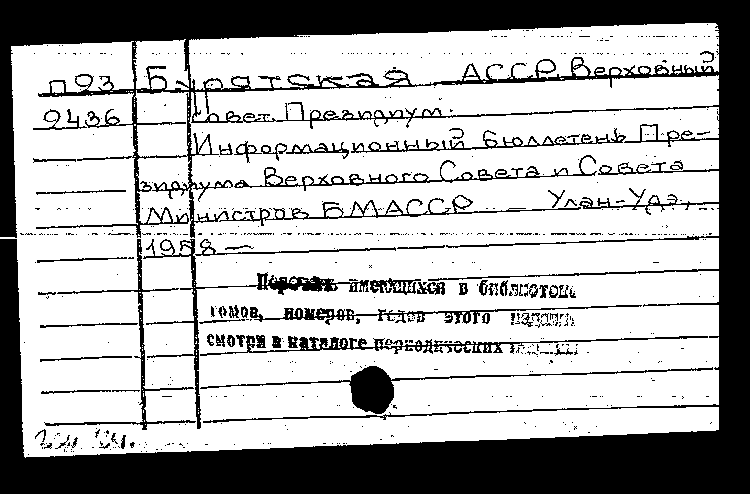 п23 Бурятская АССР. Верховный
2436 Совет. Президиум.
Информационный бюллетень Пре-
зидиума Верховного Совета и Совета
Министров БМАССР. — Улан-Удэ,
1958 —
Перечень имеющихся в библиотеке
томов, номеров, годов этого издания
смотри в каталоге периодических